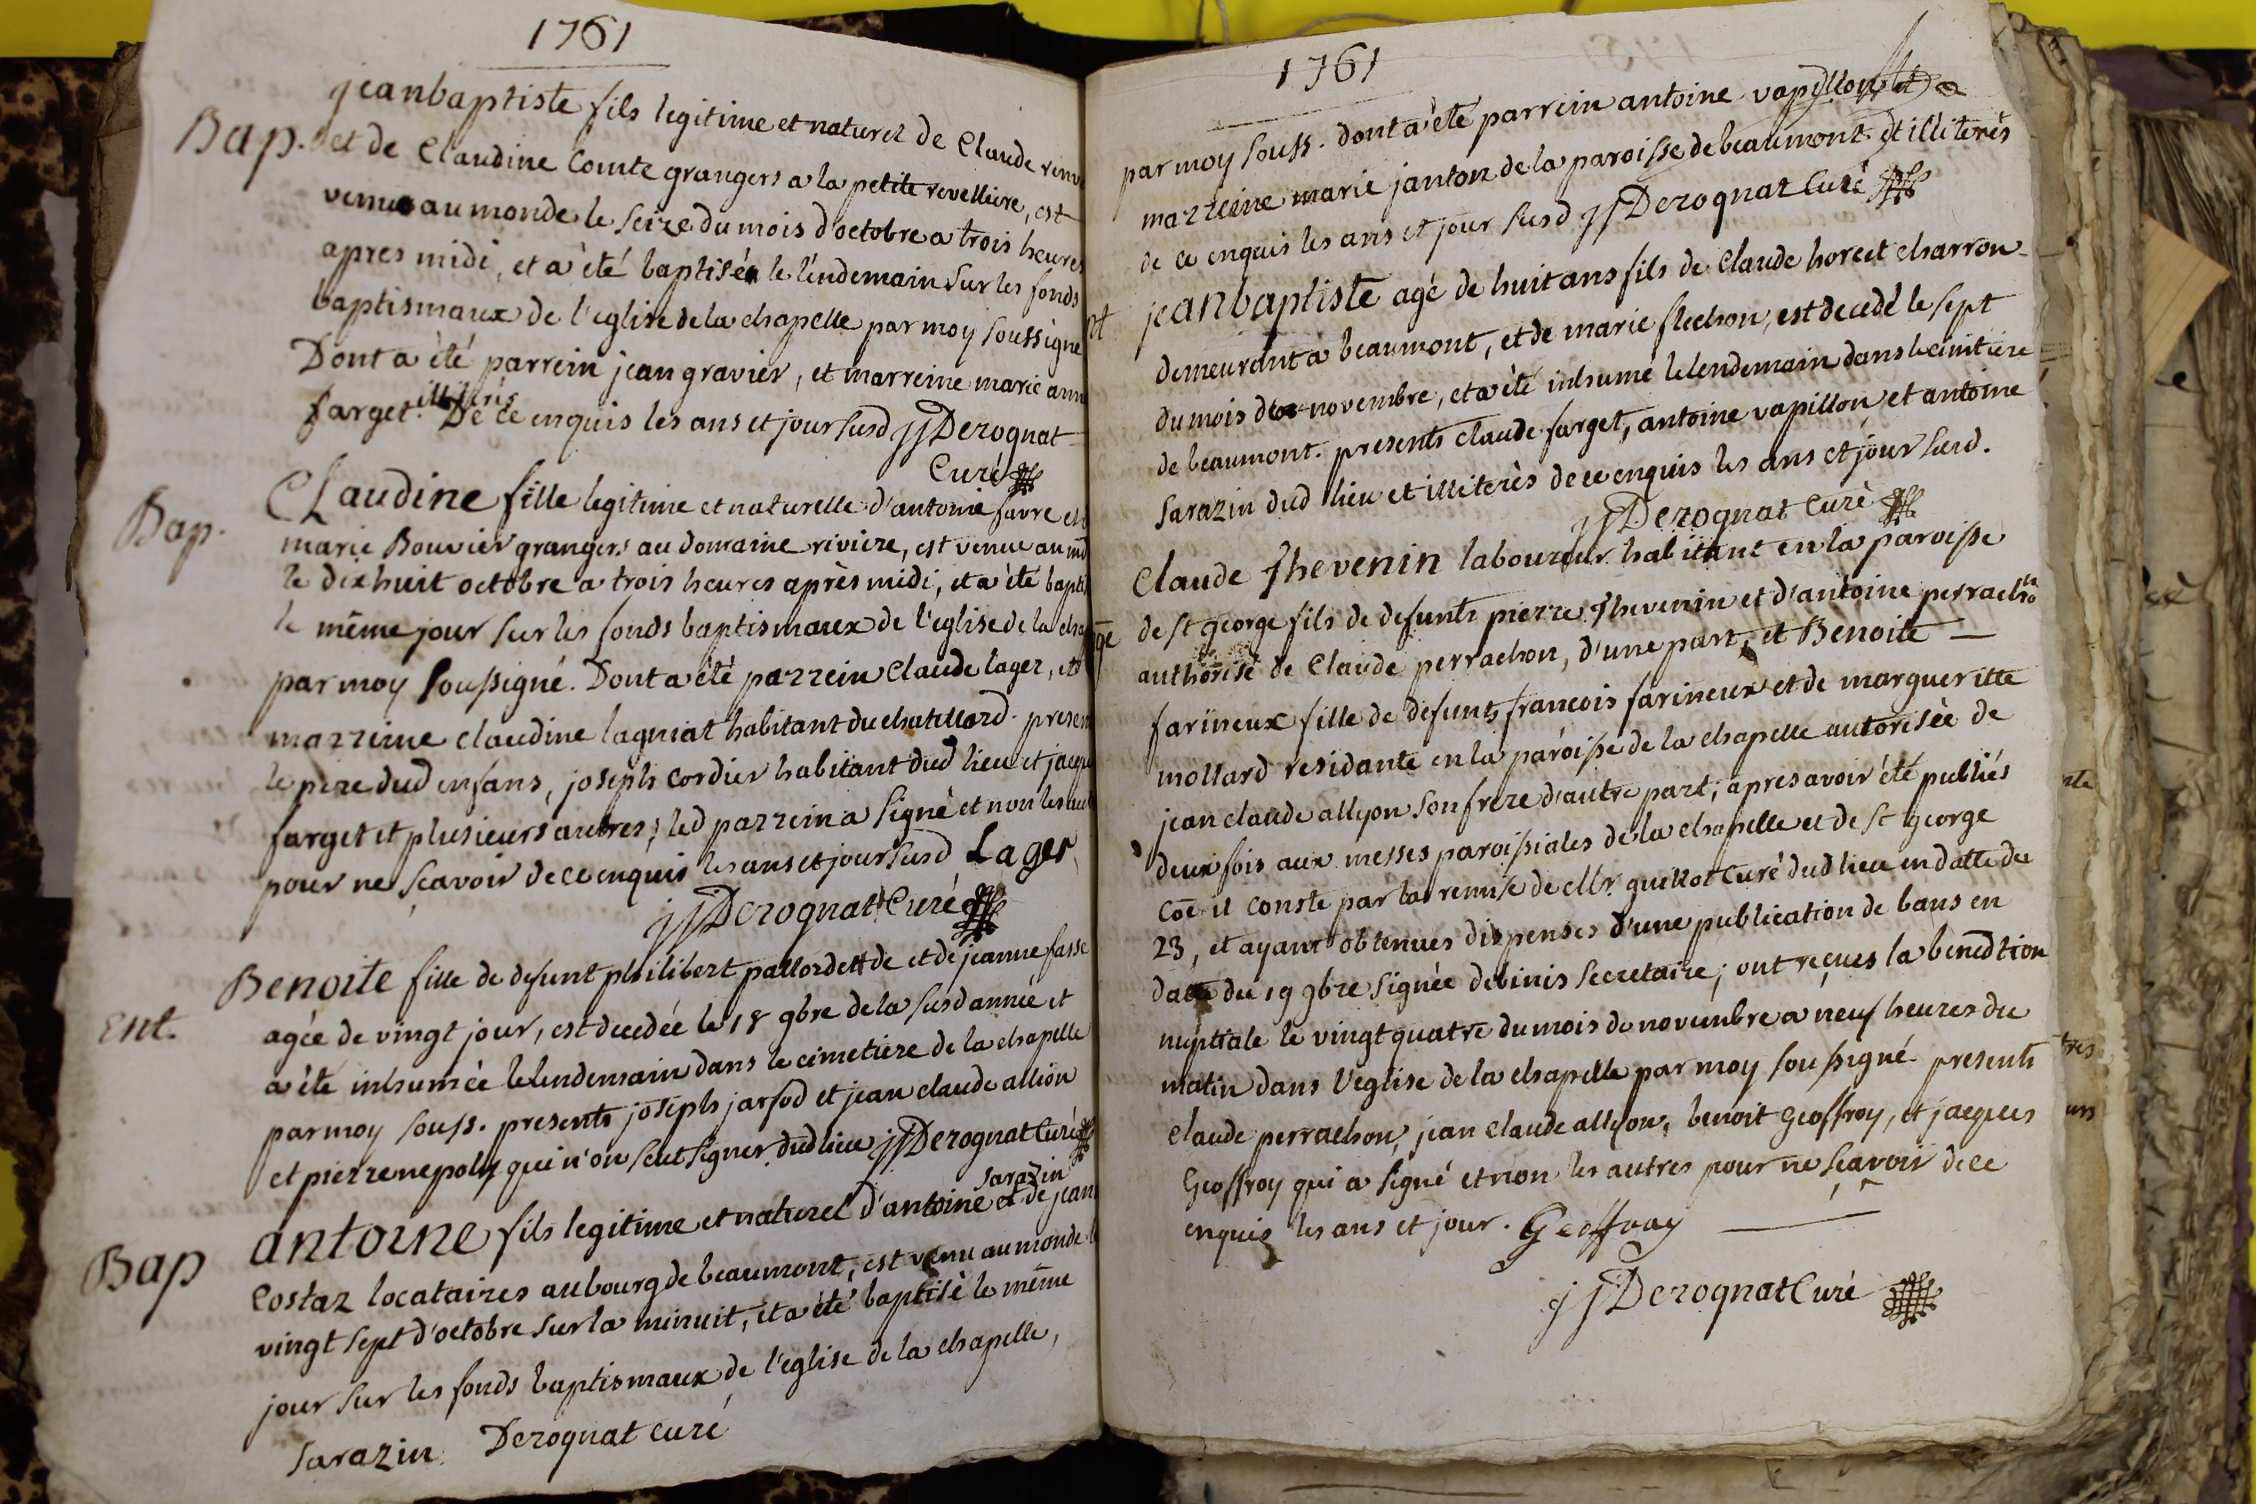 1761
Bap. jeanbaptiste fils legitime et naturel de Claude
et de Claudine Comte grangers a la petite revelliere, est
venu au monde le seize du mois d'octobre a trois heures
apres midi, et a été baptisé le lendemain sur les fonds
baptismaux de l'eglise de la chapelle par moy soussigné
Dont a été parrein jean gravier, et marreine marie ann
farget. illiterés De ce enquis les ans et jour susd jj Derognat
Curé
Bap. Claudine fille legitime et naturelle d'antoine favre et
marie Bouvier grangers au domaine riviere, est venue au
le dixhuit octobre a trois heures après midi, et a été bapt
le même jour sur les fonds baptismaux de l'eglise de la cha
par moy soussigné. Dont a été parrein Claude lager, et
marreine claudine lagniat habitant du chatillard. presen
le pere dud enfans, joseph cordier habitant dud lieu et jacque
farget et plusieurs autres; led parrein a signé et non les au
pour ne sçavoir de ce enquis les ans et jour susd Lager
jj Derognat Curé
Ent. Benoite fille de defunt philibert pallordet de et de jeanne fasse
agée de vingt jour, est decedée le 18 9bre de la susd année et
a été inhumée le lendemain dans le cimetiere de la chapelle
par moy souss. presents joseph jarfod et jean claude allion
et pierre nepoly qui n'on seut signer dud lieu jj Derognat Curé
Bap antoine fils legitime et naturel d'antoine sarazin et de jean
Costaz locataires au bourg de beaumont, est venu au monde l
vingt sept d'octobre sur la minuit, et a été baptisé le même
jour sur les fonds baptismaux de l'eglise de la chapelle,
sarazin. Derognat curé
1761
par moy souss. dont a été parrein antoine vapillon
marreine marie janton de la paroisse de beaumont. et illiterés
de ce enquis les ans et jour susd jj Derognat Curé
jeanbaptiste agé de huit ans fils de Claude horcet charron
demeurant a beaumont, et de marie flechon, est decedé le sept
du mois de novembre, et a été inhumé le lendemain dans le cimitiere
de beaumont. presents claude farget, antoine vapillon et antoine
sarazin dud lieu et illiterès de ce enquis les ans et jour susd.
jj Derognat Curé
Claude Thevenin laboureur habitant en la paroisse
de st george fils de defunts pierre Thevenin et d'antoine perrachon
authorisé de Claude perrachon, d'une part, et Benoite
farineux fille de defunts francois farineux et de margueritte
mollard residante en la paroisse de la chapelle autorisée de
jean claude allyon son frere d'autre part; apres avoir été publiés
deux fois aux messes paroissiales de la chapelle et de st george
coe il conste par la remise de Mr guillot Curé dud lieu en datte du
23, et ayant obtenues dispenses d'une publication de bans en
datte du 19 9bre signée debinis secretaire; ont reçues la benedtion
nuptiale le vingtquatre du mois de novembre a neuf heures du
matin dans l'eglise de la chapelle par moy soussigné presents
claude perrachon, jean claude allyon, benoit Geoffroy, et jacques
Geoffroy qui a signé et non les autres pour ne sçavoir de ce
enquis les ans et jour. Geoffray
jj Derognat Curé